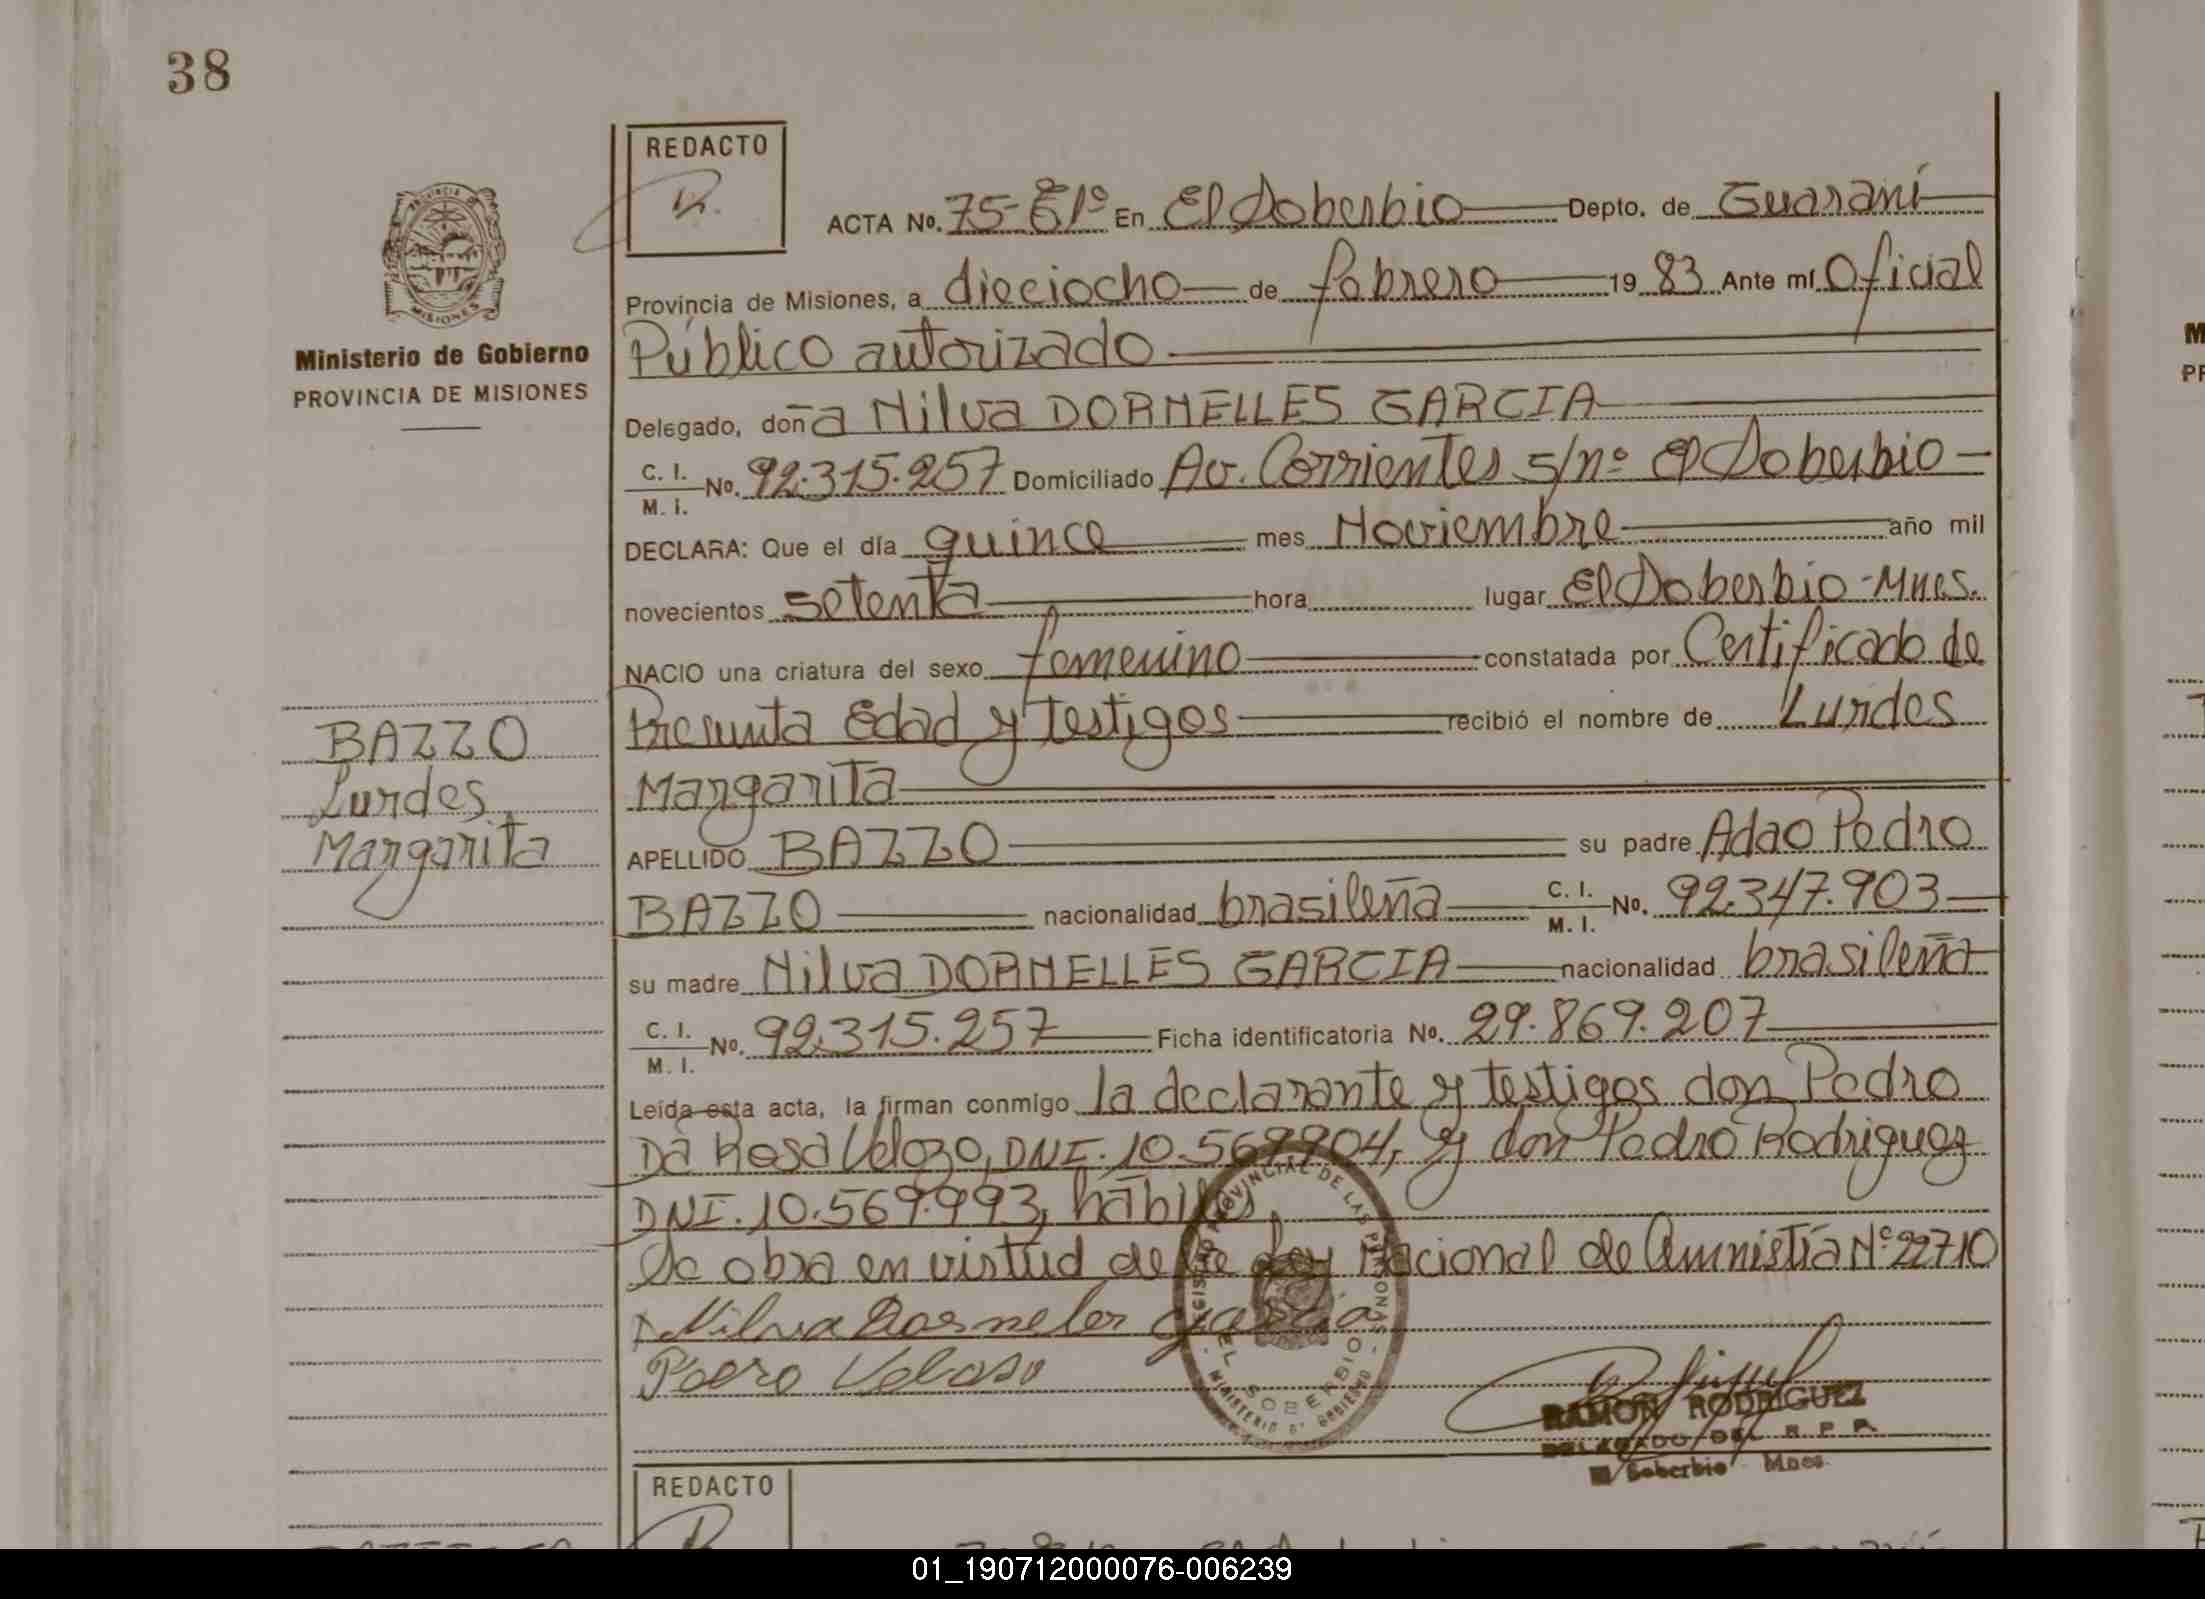 38
REDACTO
ACTA No. 75-E1º En El Soberbio Depto. de Guaraní
Provincia de Misiones, a dieciocho de febrero 19 83 Ante mí Oficial
Público autorizado
Delegado, doña Nilva DORNELLES GARCIA
C. I.
M. I. No. 92.315.257 Domiciliado Av. Corrientes s/nº El Soberbio
DECLARA: Que el día quince mes Noviembre año mil
novecientos setenta hora lugar El Soberbio-Mnes.
NACIO una criatura del sexo femenino constatada por Certificado de
Presunta Edad y testigos recibió el nombre de Lurdes
Margarita
APELLIDO BAZZO su padre Adao Pedro
BAZZO nacionalidad brasileña C. I.
M. I. No. 92.347.903
su madre Nilva DORNELLES GARCIA nacionalidad brasileña
C. I.
M. I. No. 92.315.257 Ficha identificatoria No. 29.869.207
Leída esta acta, la firman conmigo la declarante y testigos don Pedro
Da Rosa Velozo, DNI. 10.569.904, y don Pedro Rodriguez
DNI. 10.569.993, hábiles
Se obra en virtud de la Ley Nacional de Amnistía Nº 22710
Nilva Dorneles Garcia
Pedro Veloso
PROVINCIA DE
MISIONES
Ministerio de Gobierno
PROVINCIA DE MISIONES
BAZZO
Lurdes
Margarita
REGISTRO PROVINCIAL DE LAS PERSONAS
EL SOBERBIO
MINISTERIO DE GOBIERNO
RAMON RODRIGUEZ
DELEGADO DEL R. P. P.
El Soberbio Mnes.
REDACTO
01_190712000076-006239